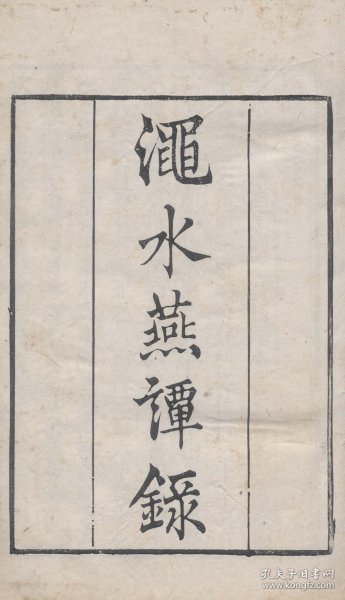 澠水燕譚錄
孔夫子旧书网
www.kongfz.com